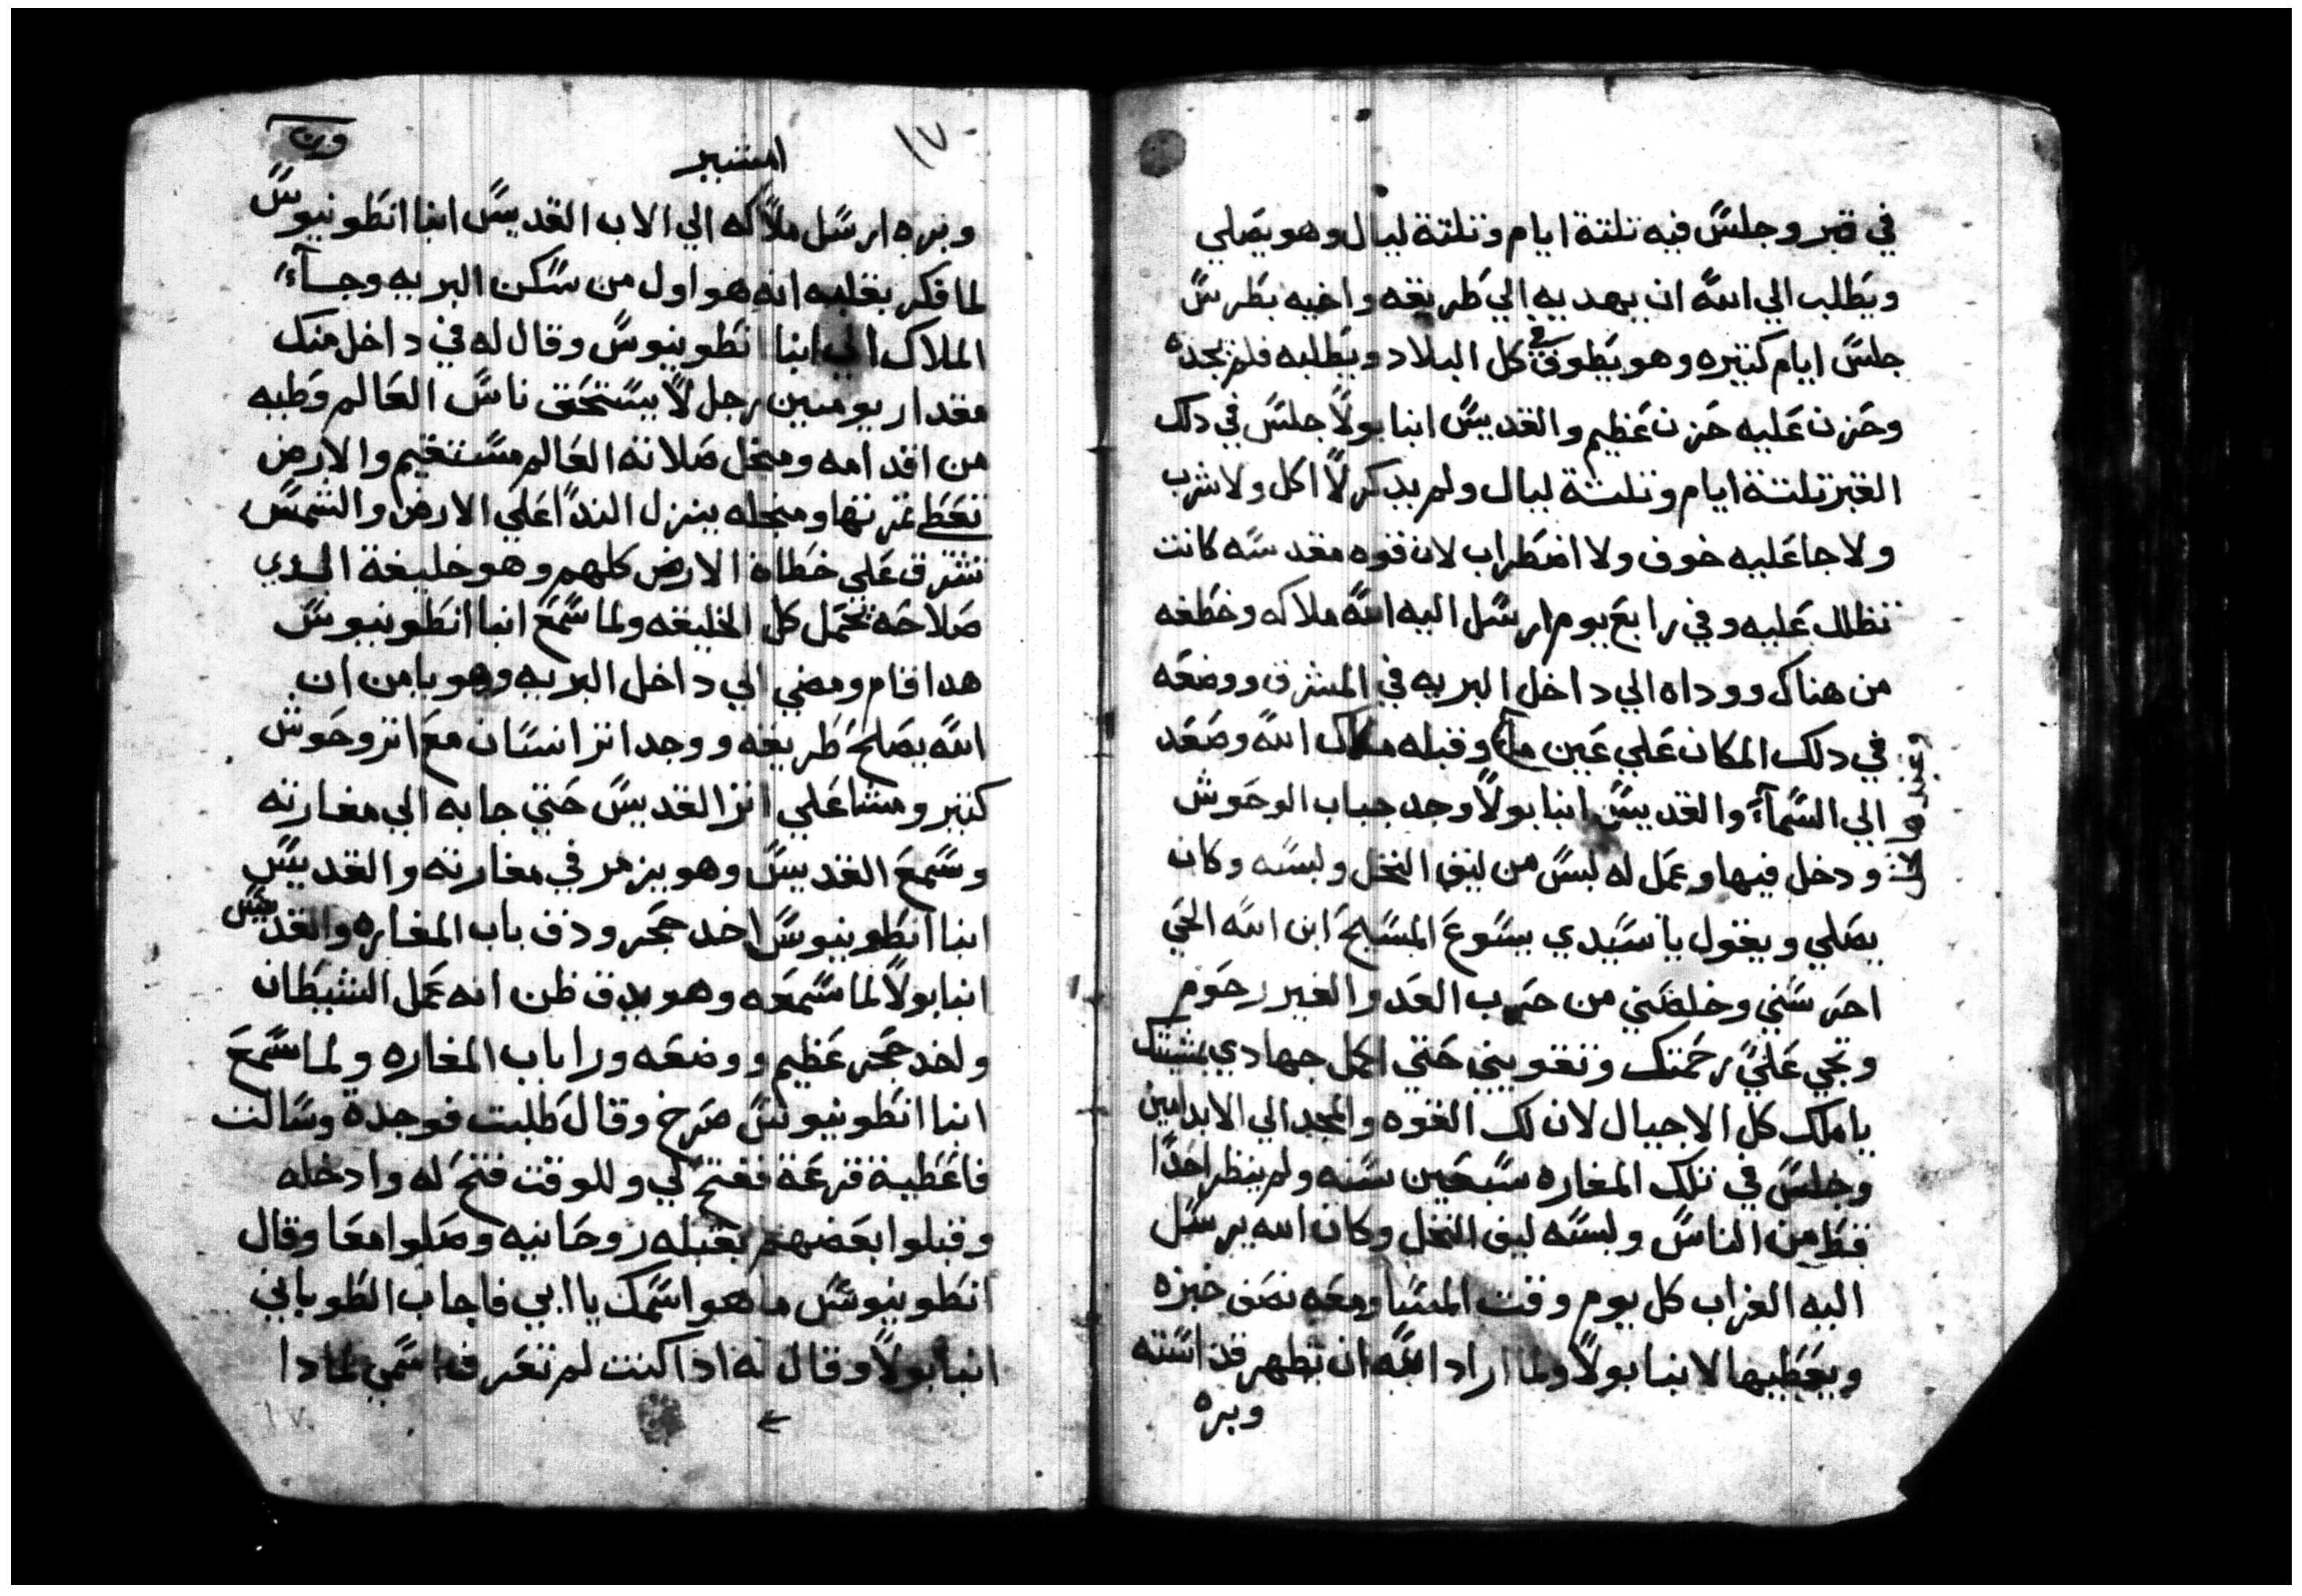 في قبر وجلس فيه تلتة ايام وتلتة ليال وهو يصلي
ويطلب الي الله ان يهديه الي طريقه واخيه بطرس
جلس ايام كتيره وهو يطوف في كل البلاد ويطلبه فلم يجده
وحزن عليه حزن عظيم والقديس انبا بولا جلس في دلك
القبر تلتة ايام وتلتة ليال ولم يدكر لا اكل ولا شرب
ولا جا عليه خوف ولا اضطراب لان قوه مقدسه كانت
تظلل عليه وفي رابع يوم ارسل اليه الله ملاكه وخطفه
من هناك ووداه الي داخل البريه في المشرق ووضعه
في دلك المكان علي عين مآء وقبله ملاك الله وصعد
الي السمآء والقديس انبا بولا وجد جباب الوحوش
ودخل فيها وعمل له لبس من ليف النخل ولبسه وكان
يصلي ويقول يا سيدي يسوع المسيح ابن الله الحي
احرسني وخلصني من حرب العدو الغير رحوم
وتجي علي رحمتك وتقويني حتي اكمل جهادي بمشيتك
يا ملك كل الاجيال لان لك القوه والمجد الي الابد امين
وجلس في تلك المغاره سبعين سنه ولم ينظر احدا
قط من الناس ولبسه ليف النخل وكان الله يرسل
اليه الغراب كل يوم وقت المسا ومعه نصف خبزه
ويعطيها لانبا بولا ولما اراد الله ان تظهر قداسته
وبره
١٧
امشير
وبره ارسل ملاكه الي الاب القديس انبا انطونيوس
لما فكر بقلبه انه هو اول من سكن البريه وجآء
الملاك الي انبا انطونيوس وقال له في داخل منك
مقدار يومين رجل لا يستحق ناس العالم وطيه
من اقدامه ومنجل صلاته العالم مستقيم والارض
تعط غرتها ومنجله ينزل الندا علي الارض والشمس
تشرق علي خطاة الارض كلهم وهو خليفة الجدي
صلاحه تحمل كل الخليقه ولما سمع انبا انطونيوس
هدا قام ومضي الي داخل البريه وهو يامن ان
الله يصلح طريقه ووجد اتر انسان مع اتر وحوش
كتير ومشا علي اتر القديس حتي جا به الي مغارته
وسمع القديس وهو يزمر في مغارته والقديس
انبا انطونيوس اخد حجر ودق باب المغاره والقديس
انبا بولا لما سمعه وهو يدق ظن انه عمل الشيطان
واخد حجر عظيم ووضعه ورا باب المغاره ولما سمع
انبا انطونيوس صرخ وقال طلبت فوجدة وسالت
فاعطية قرعة ففتح لي وللوقت فتح له وادخله
وقبلوا بعضهم بقبله روحانيه وصلوا معا وقال
انطونيوس ما هو اسمك يا ابي فاجاب الطوباني
انبا بولا وقال له ادا كنت لم تعرف اسمي لمادا